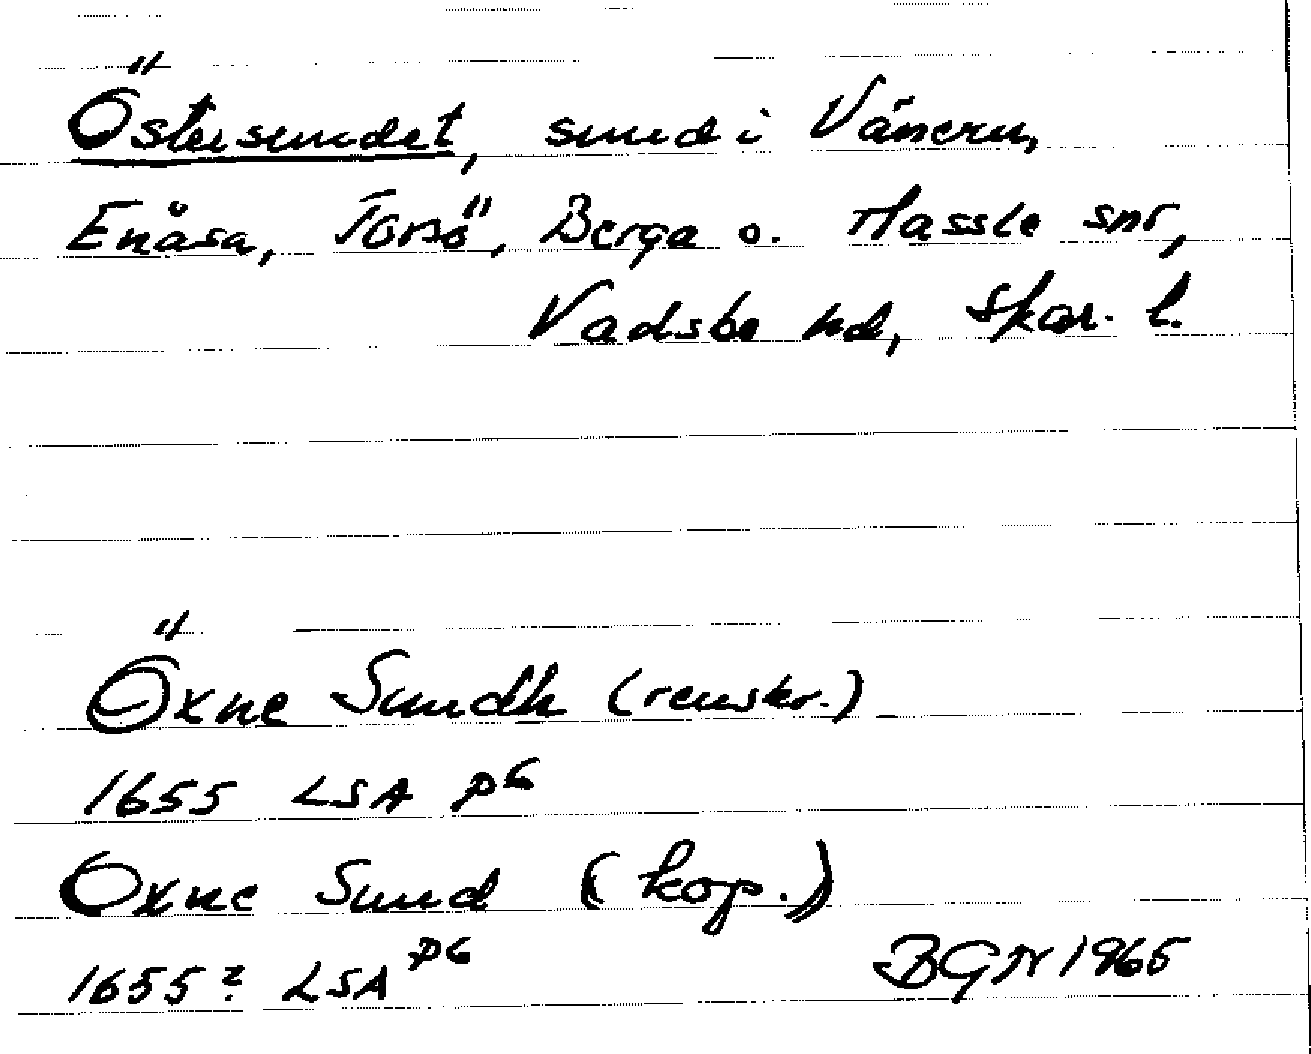 Östersundet, sund i Vänern,
Enåsa, Torsö, Berga o. Hassle snr,
Vadsbo hd, Skar. l.
Öxne Sundh (renskr.)
1655 LSA P6
Oxne Sund (kop.)
1655? LSA P6
BGN 1965